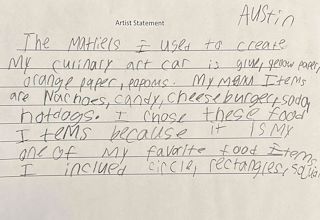 Artist Statement
AUSTIN
The Matliels I used to create
My culinary art car is glue, yellow paper,
orange paper, popoms. My menu Items
are Nachoes, candy, cheeseburger, soda,
hotdogs. I chose these food
Items because it is my
one of my favorite food Items
I inclued circle, rectangles,